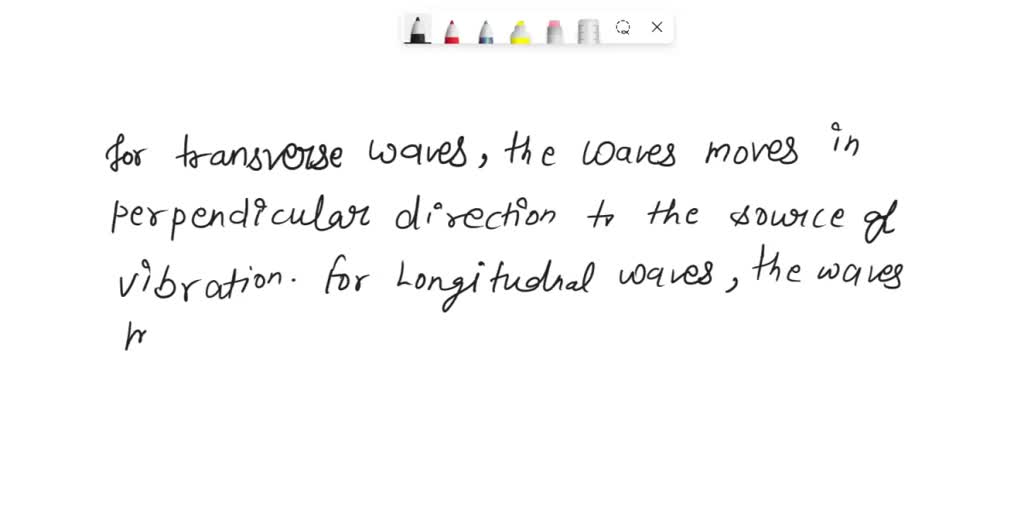 for transverse waves, the waves moves in
perpendicular direction to the source of
vibration. for Longitudnal waves, the waves